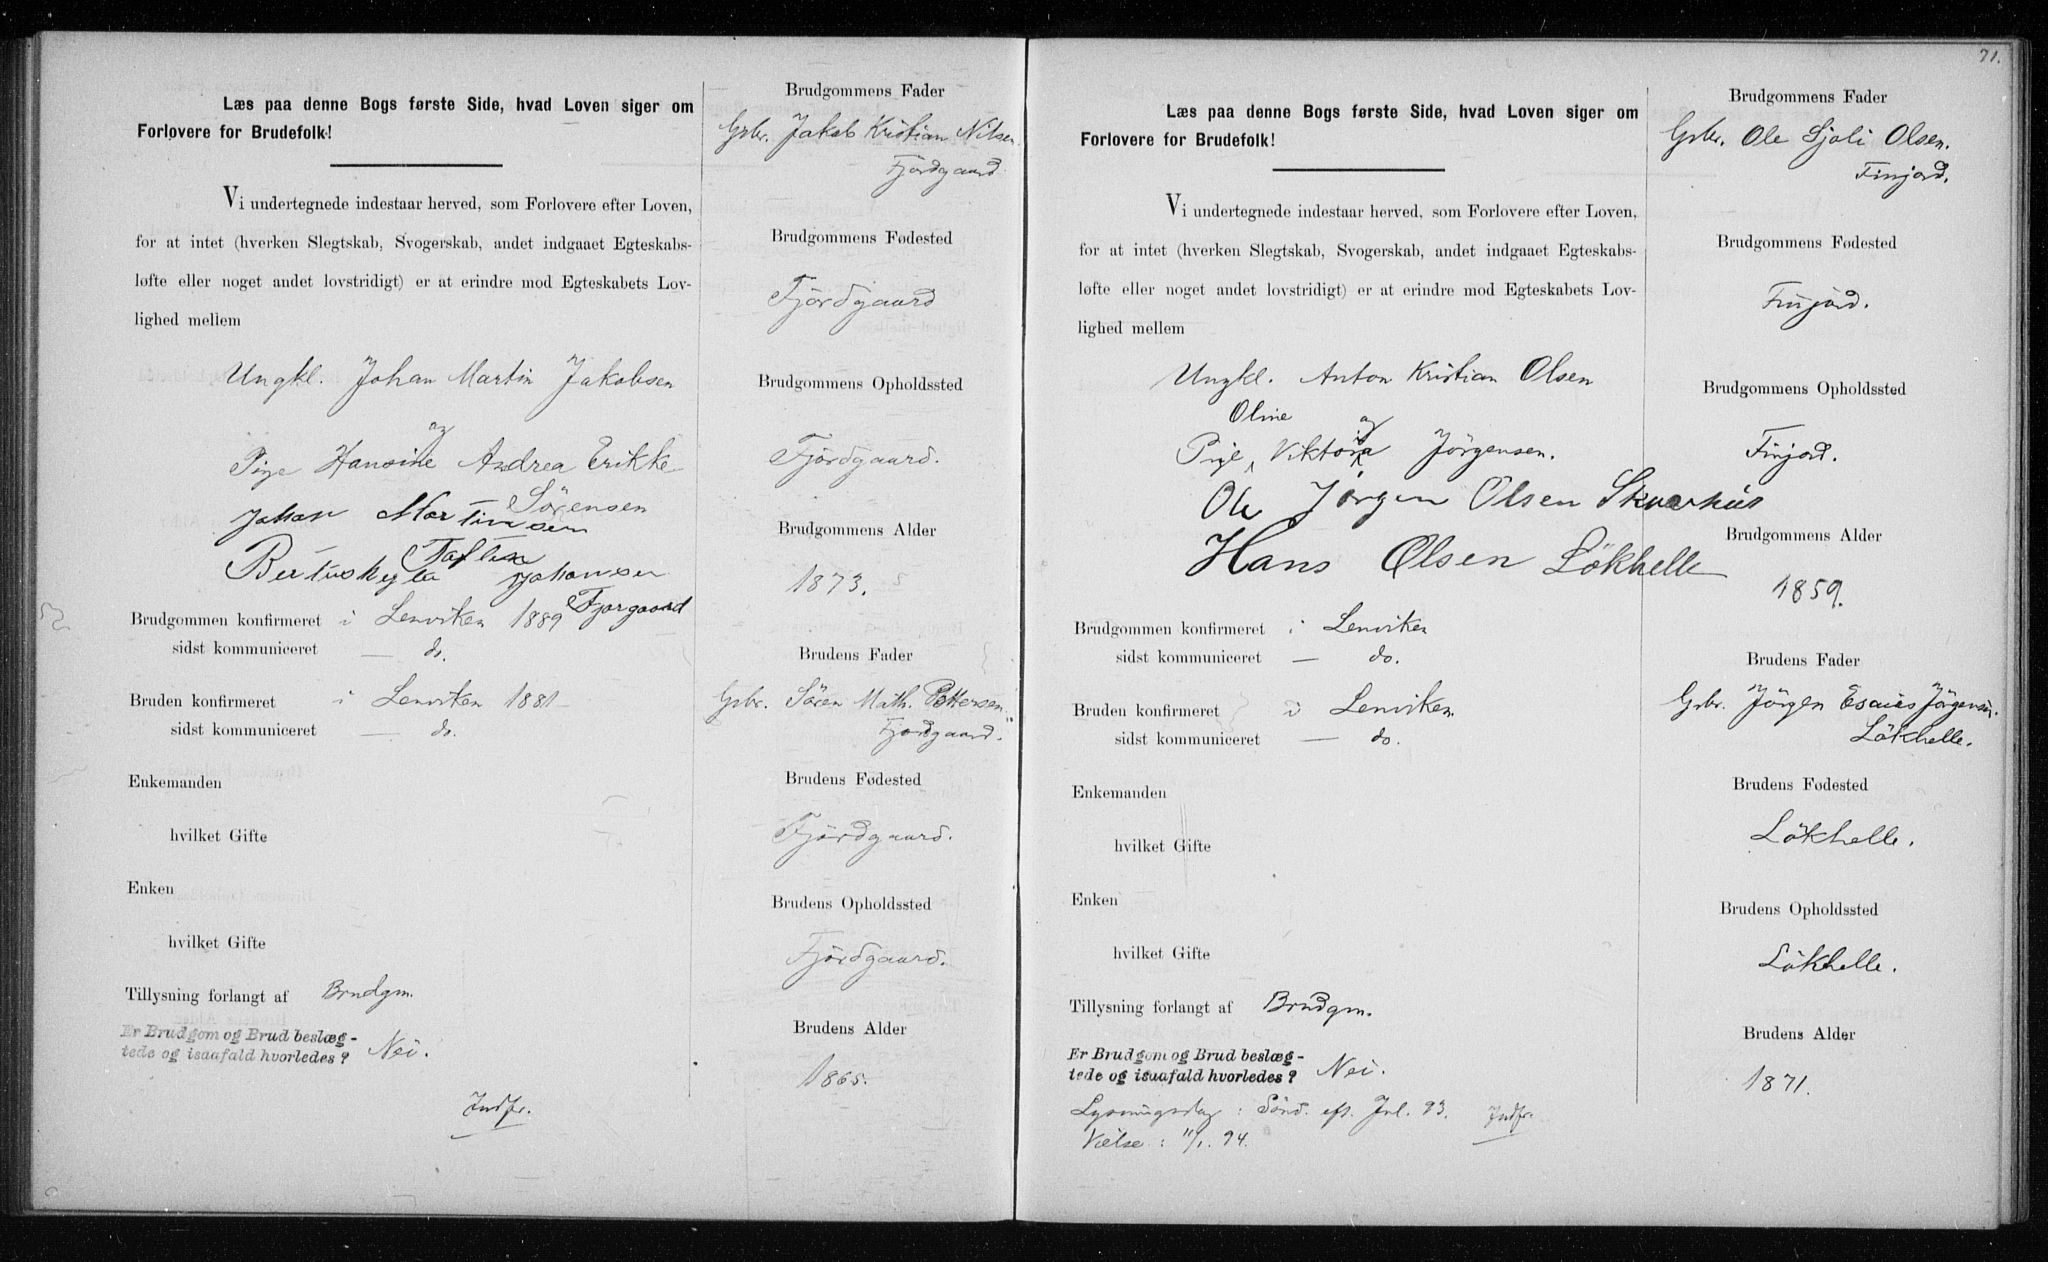 Læs paa denne Bogs første Side, hvad Loven siger om
Forlovere for Brudefolk!
Vi undertegnede indestaar herved, som Forlovere efter Loven,
for at intet (hverken Slegtskab, Svogerskab, andet indgaaet Egteskabs-
løfte eller noget andet lovstridigt) er at erindre mod Egteskabets Lov-
lighed mellem
Ungkl. Johan Martin Jakobsen
og
Pige Hansine Andrea Erikke
Sörensen
Johan Martinsen
Taften
Bertus Johansen
Fjorgaard
Brudgommen konfirmeret i Lenviken 1889
sidst kommuniceret — do.
Bruden konfirmeret i Lenviken 1881
sidst kommuniceret — do.
Enkemanden
hvilket Gifte
Enken
hvilket Gifte
Tillysning forlangt af Brudgm.
Er Brudgom og Brud beslæg-
tede og isaafald hvorledes? Nei.
Indfr.
Brudgommens Fader
Gbr. Jakob Kristian Nilsen
Fjordgaard
Brudgommens Fødested
Fjordgaard
Brudgommens Opholdssted
Fjordgaard.
Brudgommens Alder
1873.
Brudens Fader
Gbr. Sören Math. Pettersen
Fjordgaard.
Brudens Fødested
Fjordgaard.
Brudens Opholdssted
Fjordgaard.
Brudens Alder
1865.
71.
Læs paa denne Bogs første Side, hvad Loven siger om
Forlovere for Brudefolk!
Vi undertegnede indestaar herved, som Forlovere efter Loven,
for at intet (hverken Slegtskab, Svogerskab, andet indgaaet Egteskabs-
løfte eller noget andet lovstridigt) er at erindre mod Egteskabets Lov-
lighed mellem
Ungkl. Anton Kristian Olsen
Oline og
Pige Viktoria Jörgensen.
Ole Jörgen Olsen Skvarhus
Hans Olsen Lökhelle
Brudgommen konfirmeret i Lenviken
sidst kommuniceret — do.
Bruden konfirmeret i Lenviken
sidst kommuniceret — do.
Enkemanden
hvilket Gifte
Enken
hvilket Gifte
Tillysning forlangt af Brudgm.
Er Brudgom og Brud beslæg-
tede og isaafald hvorledes? Nei.
Lysningsdag: Sönd. eft. Jul. 93. Indfr.
Vielse: 11/1. 94.
Brudgommens Fader
Gbr. Ole Sjoli Olsen.
Finjord.
Brudgommens Fødested
Finjord.
Brudgommens Opholdssted
Finjord.
Brudgommens Alder
1859.
Brudens Fader
Gbr. Jörgen Esaias Jörgensen.
Lökhelle.
Brudens Fødested
Lökhelle.
Brudens Opholdssted
Lökhelle.
Brudens Alder
1871.